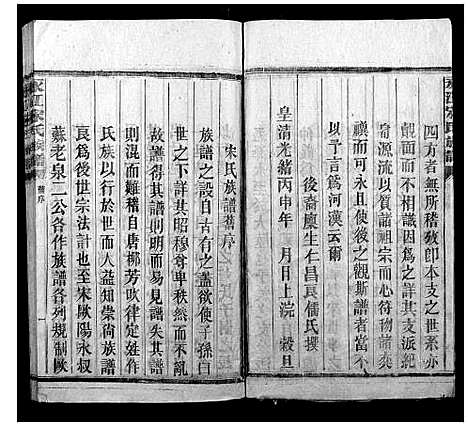 四方者無所稽攷即本支之世系亦
覿面而不相識因爲之詳其支派紀
其源流以質諸祖宗而心符物諸奕
禩而可永且使後之觀斯譜者當不
以予言爲河漢云爾
後裔廩生仁昌良儒氏撰
皇清光緒丙申年 月日上浣 穀旦
宋氏族譜舊序
族譜之設自古有之蓋欲使子孫曰
世之下詳其昭穆尊卑秩然而不亂
故譜得其譜則明而易見譜失其譜
則混而難稽自唐柳芳吹律定姓作
氏族以行於世而人益知崇尚族譜
良爲後世宗法計也至宋歐陽永叔
蘇老泉二公各作族譜各列規制歐
永江宋氏族譜
舊序
一
永江宋氏族譜